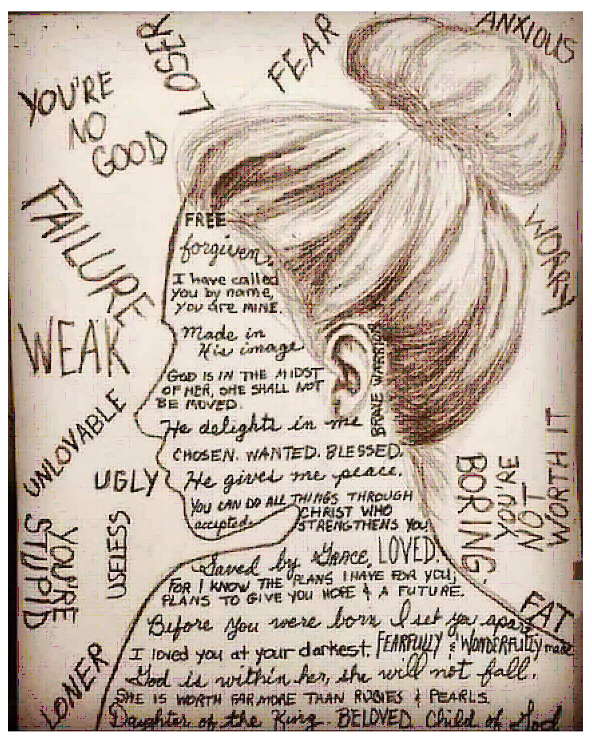 LOSER
FEAR
ANXIOUS
YOU'RE
NO
GOOD
FAILURE
WEAK
UNLOVABLE
UGLY
USELESS
YOU'RE
STUPID
LONER
WORRY
BORING
YOU'RE
NOT
WORTH IT
FAT
FREE
forgiven.
I have called
you by name,
you are MINE.
Made in
His image
GOD IS IN THE MIDST
OF HER, SHE SHALL NOT
BE MOVED.
BRAVE WARRIOR
He delights in me
CHOSEN. WANTED. BLESSED.
He gives me peace.
YOU CAN DO ALL THINGS THROUGH
CHRIST WHO
accepted. STRENGTHENS YOU
Saved by Grace, LOVED.
FOR I KNOW THE PLANS I HAVE FOR YOU,
PLANS TO GIVE YOU HOPE & A FUTURE.
Before you were born I set you apart
I loved you at your darkest. FEARFULLY & WONDERFULLY made
God is within her, she will not fall.
SHE IS WORTH FAR MORE THAN RUBIES & PEARLS.
Daughter of the King. BELOVED. Child of God